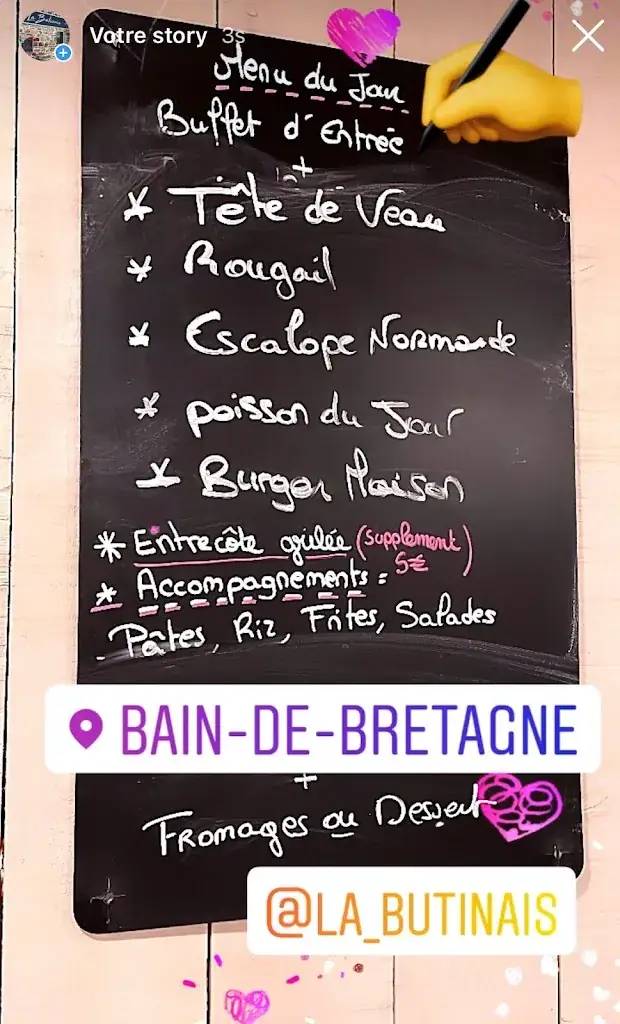 Votre story 3s
Menu du Jour
Buffet d'Entrée
+
* Tête de Veau
* Rougail
* Escalope Normande
* poisson du Jour
* Burger Maison
* Entrecôte grillée (supplement 5€)
* Accompagnements :
- Pâtes, Riz, Frites, Salades
BAIN-DE-BRETAGNE
+
Fromages ou Dessert
@LA_BUTINAIS